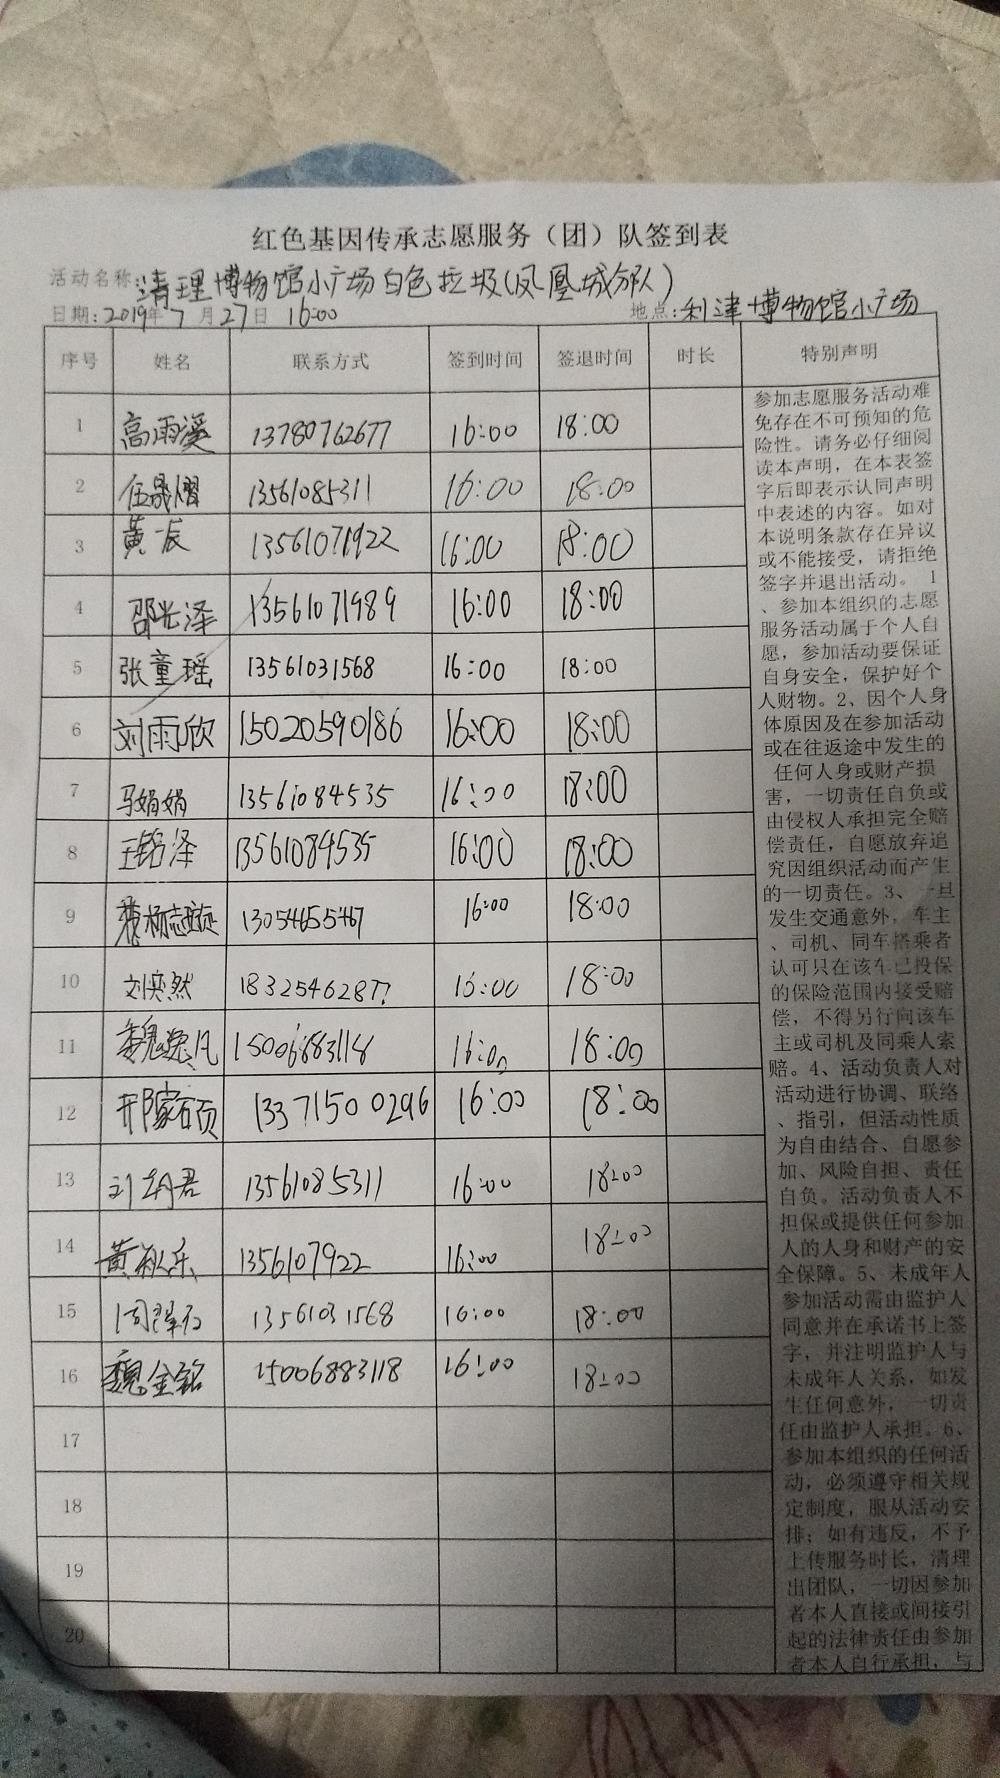 红色基因传承志愿服务（团）队签到表
活动名称：清理博物馆小广场白色垃圾(凤凰城部队)
日期：2019年7月27日 16:00 地点：利津博物馆小广场
序号 姓名 联系方式 签到时间 签退时间 时长 特别声明
1 高雨溪 13780762677 16:00 18:00
2 伍晟熠 13561085311 16:00 18:00
3 黄辰 13561071922 16:00 18:00
4 邵光泽 13561071989 16:00 18:00
5 张童瑶 13561031568 16:00 18:00
6 刘雨欣 15020590186 16:00 18:00
7 马娟娟 13561084535 16:00 18:00
8 王铭泽 13561084535 16:00 18:00
9 13054655467 16:00 18:00
10 刘奕然 18325462877 16:00 18:00
11 魏逸凡 15006883118 16:00 18:00
12 13371500296 16:00 18:00
13 君 13561085311 16:00 18:00
14 黄 乐 1356107922 16:00 18:00
15 13561031568 16:00 18:00
16 魏金铭 15006883118 16:00 18:00
17
18
19
20
参加志愿服务活动难
免存在不可预知的危
险性。请务必仔细阅
读本声明，在本表签
字后即表示认同声明
中表述的内容。如对
本说明条款存在异议
或不能接受，请拒绝
签字并退出活动。 1
、参加本组织的志愿
服务活动属于个人自
愿，参加活动要保证
自身安全，保护好个
人财物。2、因个人身
体原因及在参加活动
或在往返途中发生的
任何人身或财产损
害，一切责任自负或
由侵权人承担完全赔
偿责任，自愿放弃追
究因组织活动而产生
的一切责任。3、一旦
发生交通意外，车主
、司机、同车搭乘者
认可只在该车已投保
的保险范围内接受赔
偿，不得另行向该车
主或司机及同乘人索
赔。4、活动负责人对
活动进行协调、联络
、指引，但活动性质
为自由结合、自愿参
加、风险自担、责任
自负。活动负责人不
担保或提供任何参加
人的人身和财产的安
全保障。5、未成年人
参加活动需由监护人
同意并在承诺书上签
字，并注明监护人与
未成年人关系，如发
生任何意外，一切责
任由监护人承担。6、
参加本组织的任何活
动，必须遵守相关规
定制度，服从活动安
排；如有违反，不予
上传服务时长，清理
出团队，一切因参加
者本人直接或间接引
起的法律责任由参加
者本人自行承担，与